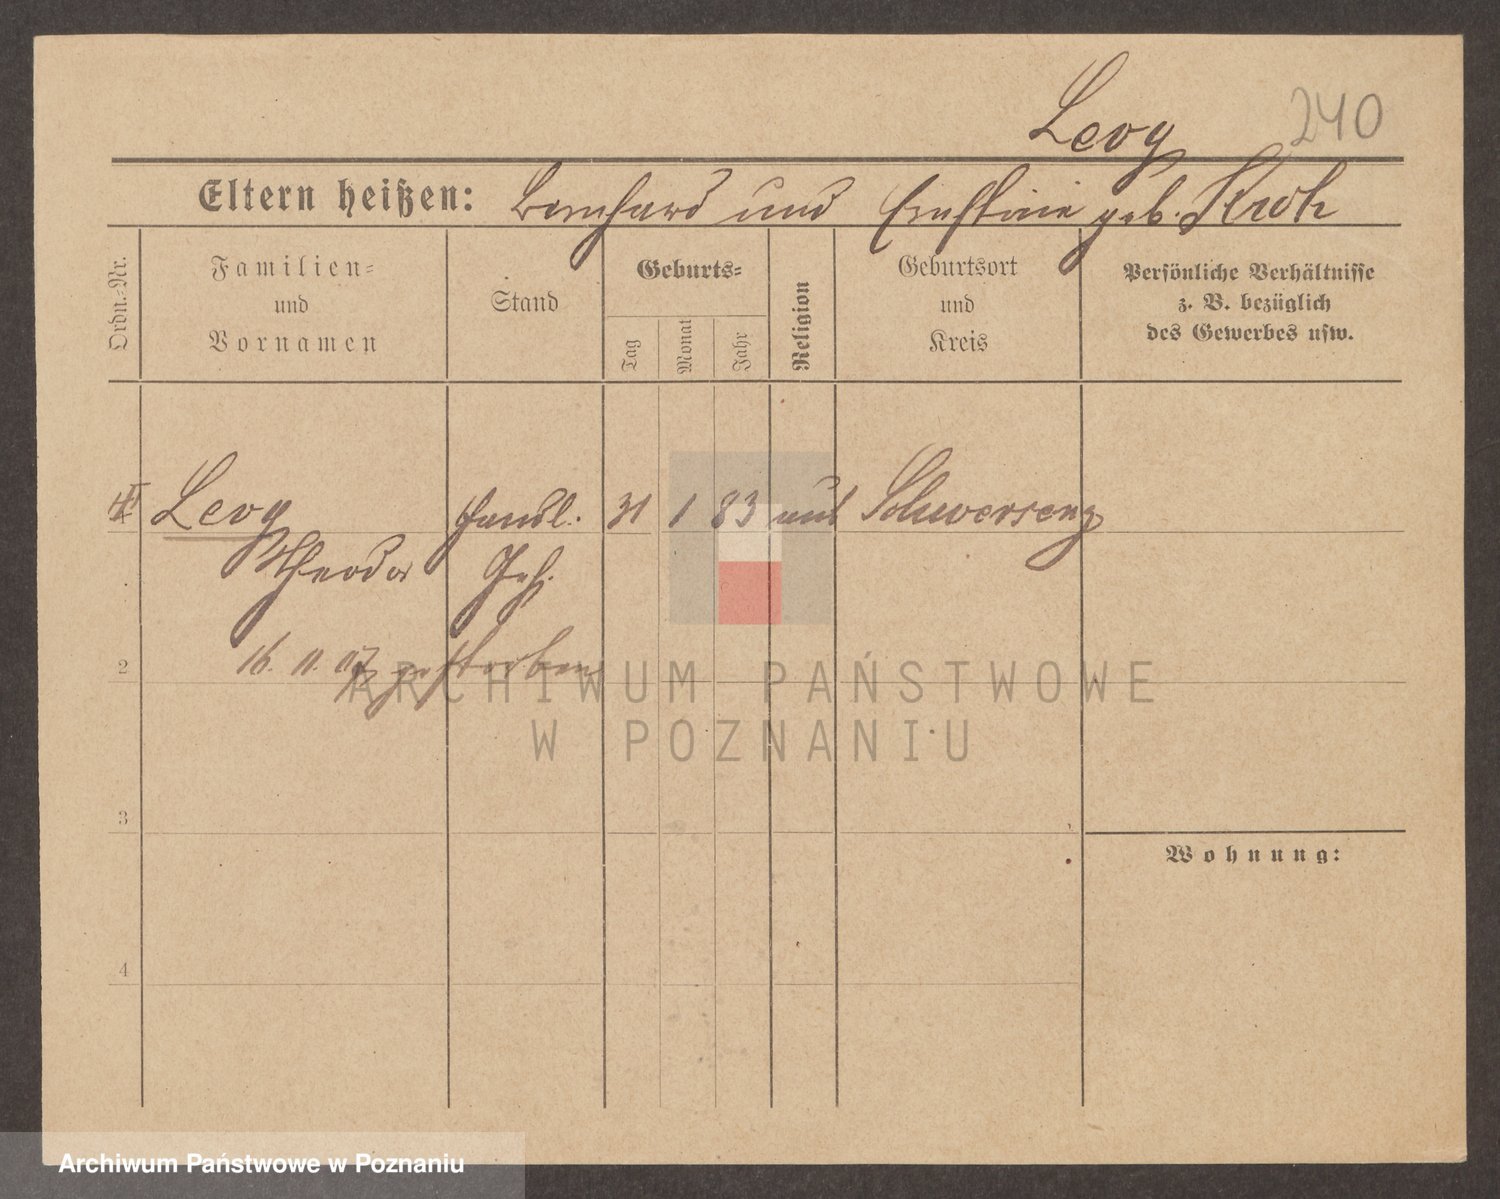 Levy 240
Eltern heißen: Bernhard und Ernstine geb. Krok
Ordn.-Nr.
Familien-
und
Vornamen
Stand
Geburts-
Tag
Monat
Jahr
Religion
Geburtsort
und
Kreis
Persönliche Verhältnisse
z. B. bezüglich
des Gewerbes usw.
Levy Handl. 31 1 83 Schwersenz
Theodor Geh.
2 16. 11. 07 gestorben
3
4
Wohnung:
ARCHIWUM PAŃSTWOWE
W POZNANIU
Archiwum Państwowe w Poznaniu